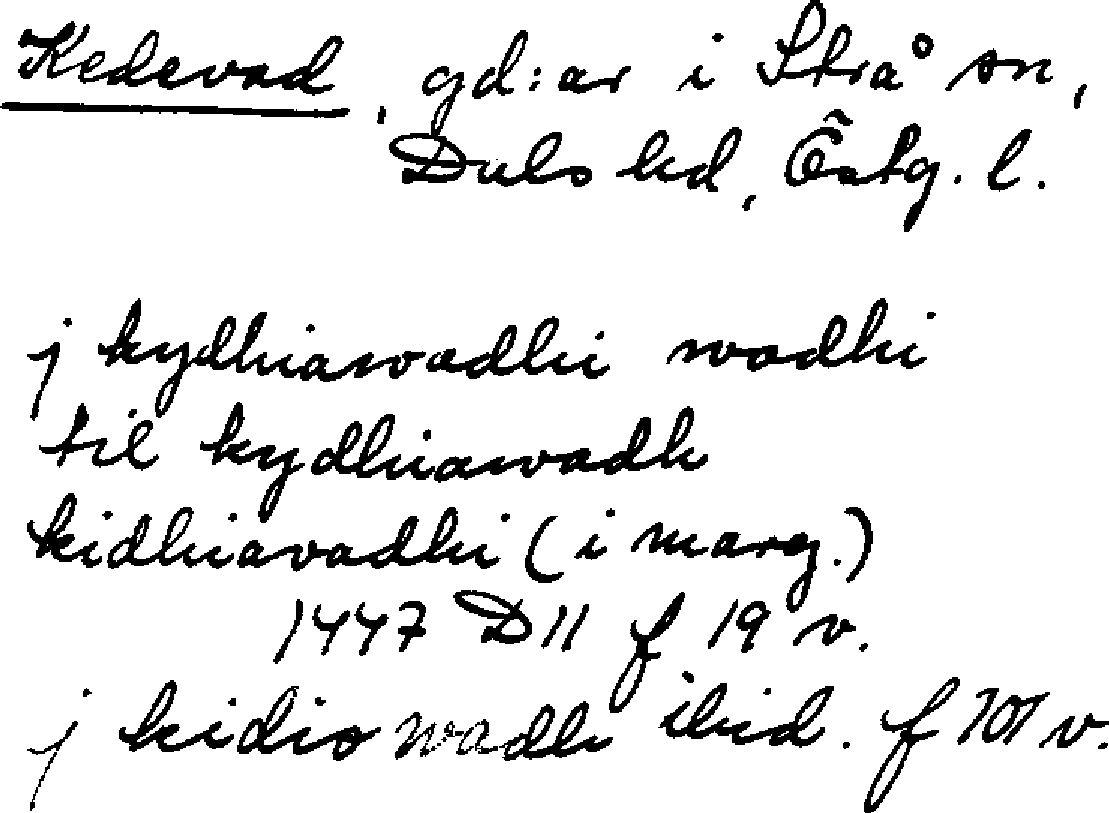 Kedevad, gd:ar i Strå sn,
Dals hd, Östg. l.
j kydhiawadhi wadhi
til kydhiawadh
kidhiavadhi (i marg.)
1447 D11 f 19 v.
j kidio wadh ibid. f 101 v.